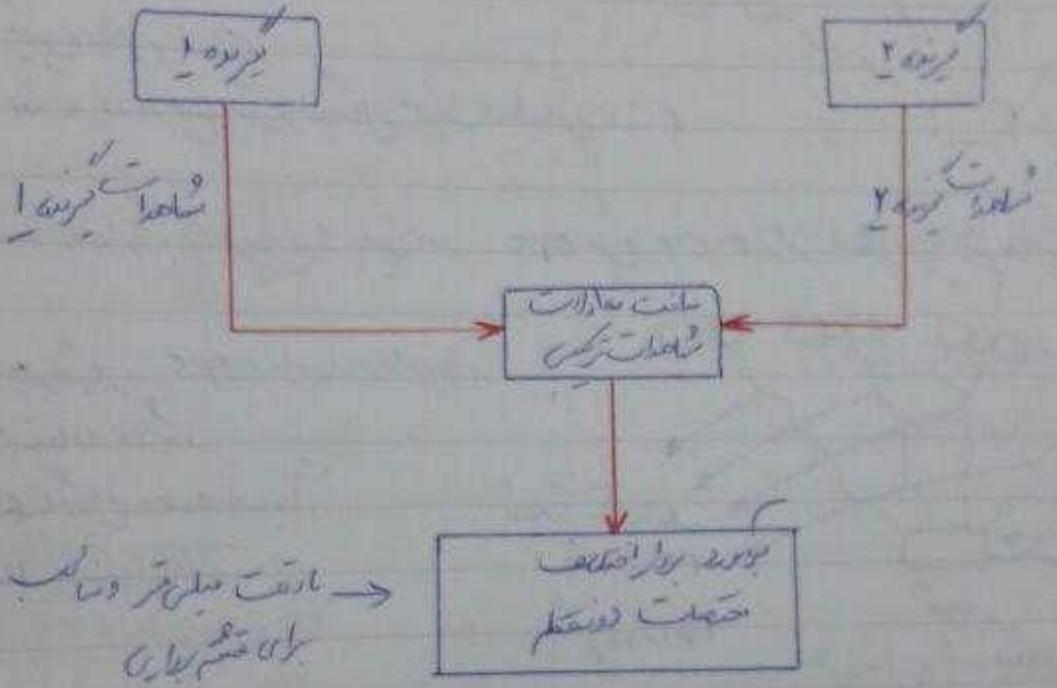 گیرنده ۱
گیرنده ۲
مشاهدات گیرنده ۱
مشاهدات گیرنده ۲
ساخت معادلات
مشاهدات ترکیبی
برآورد بردار اختلاف
مختصات دو نقطه
بادقت میلی‌متر و مناسب ←
برای نقشه برداری